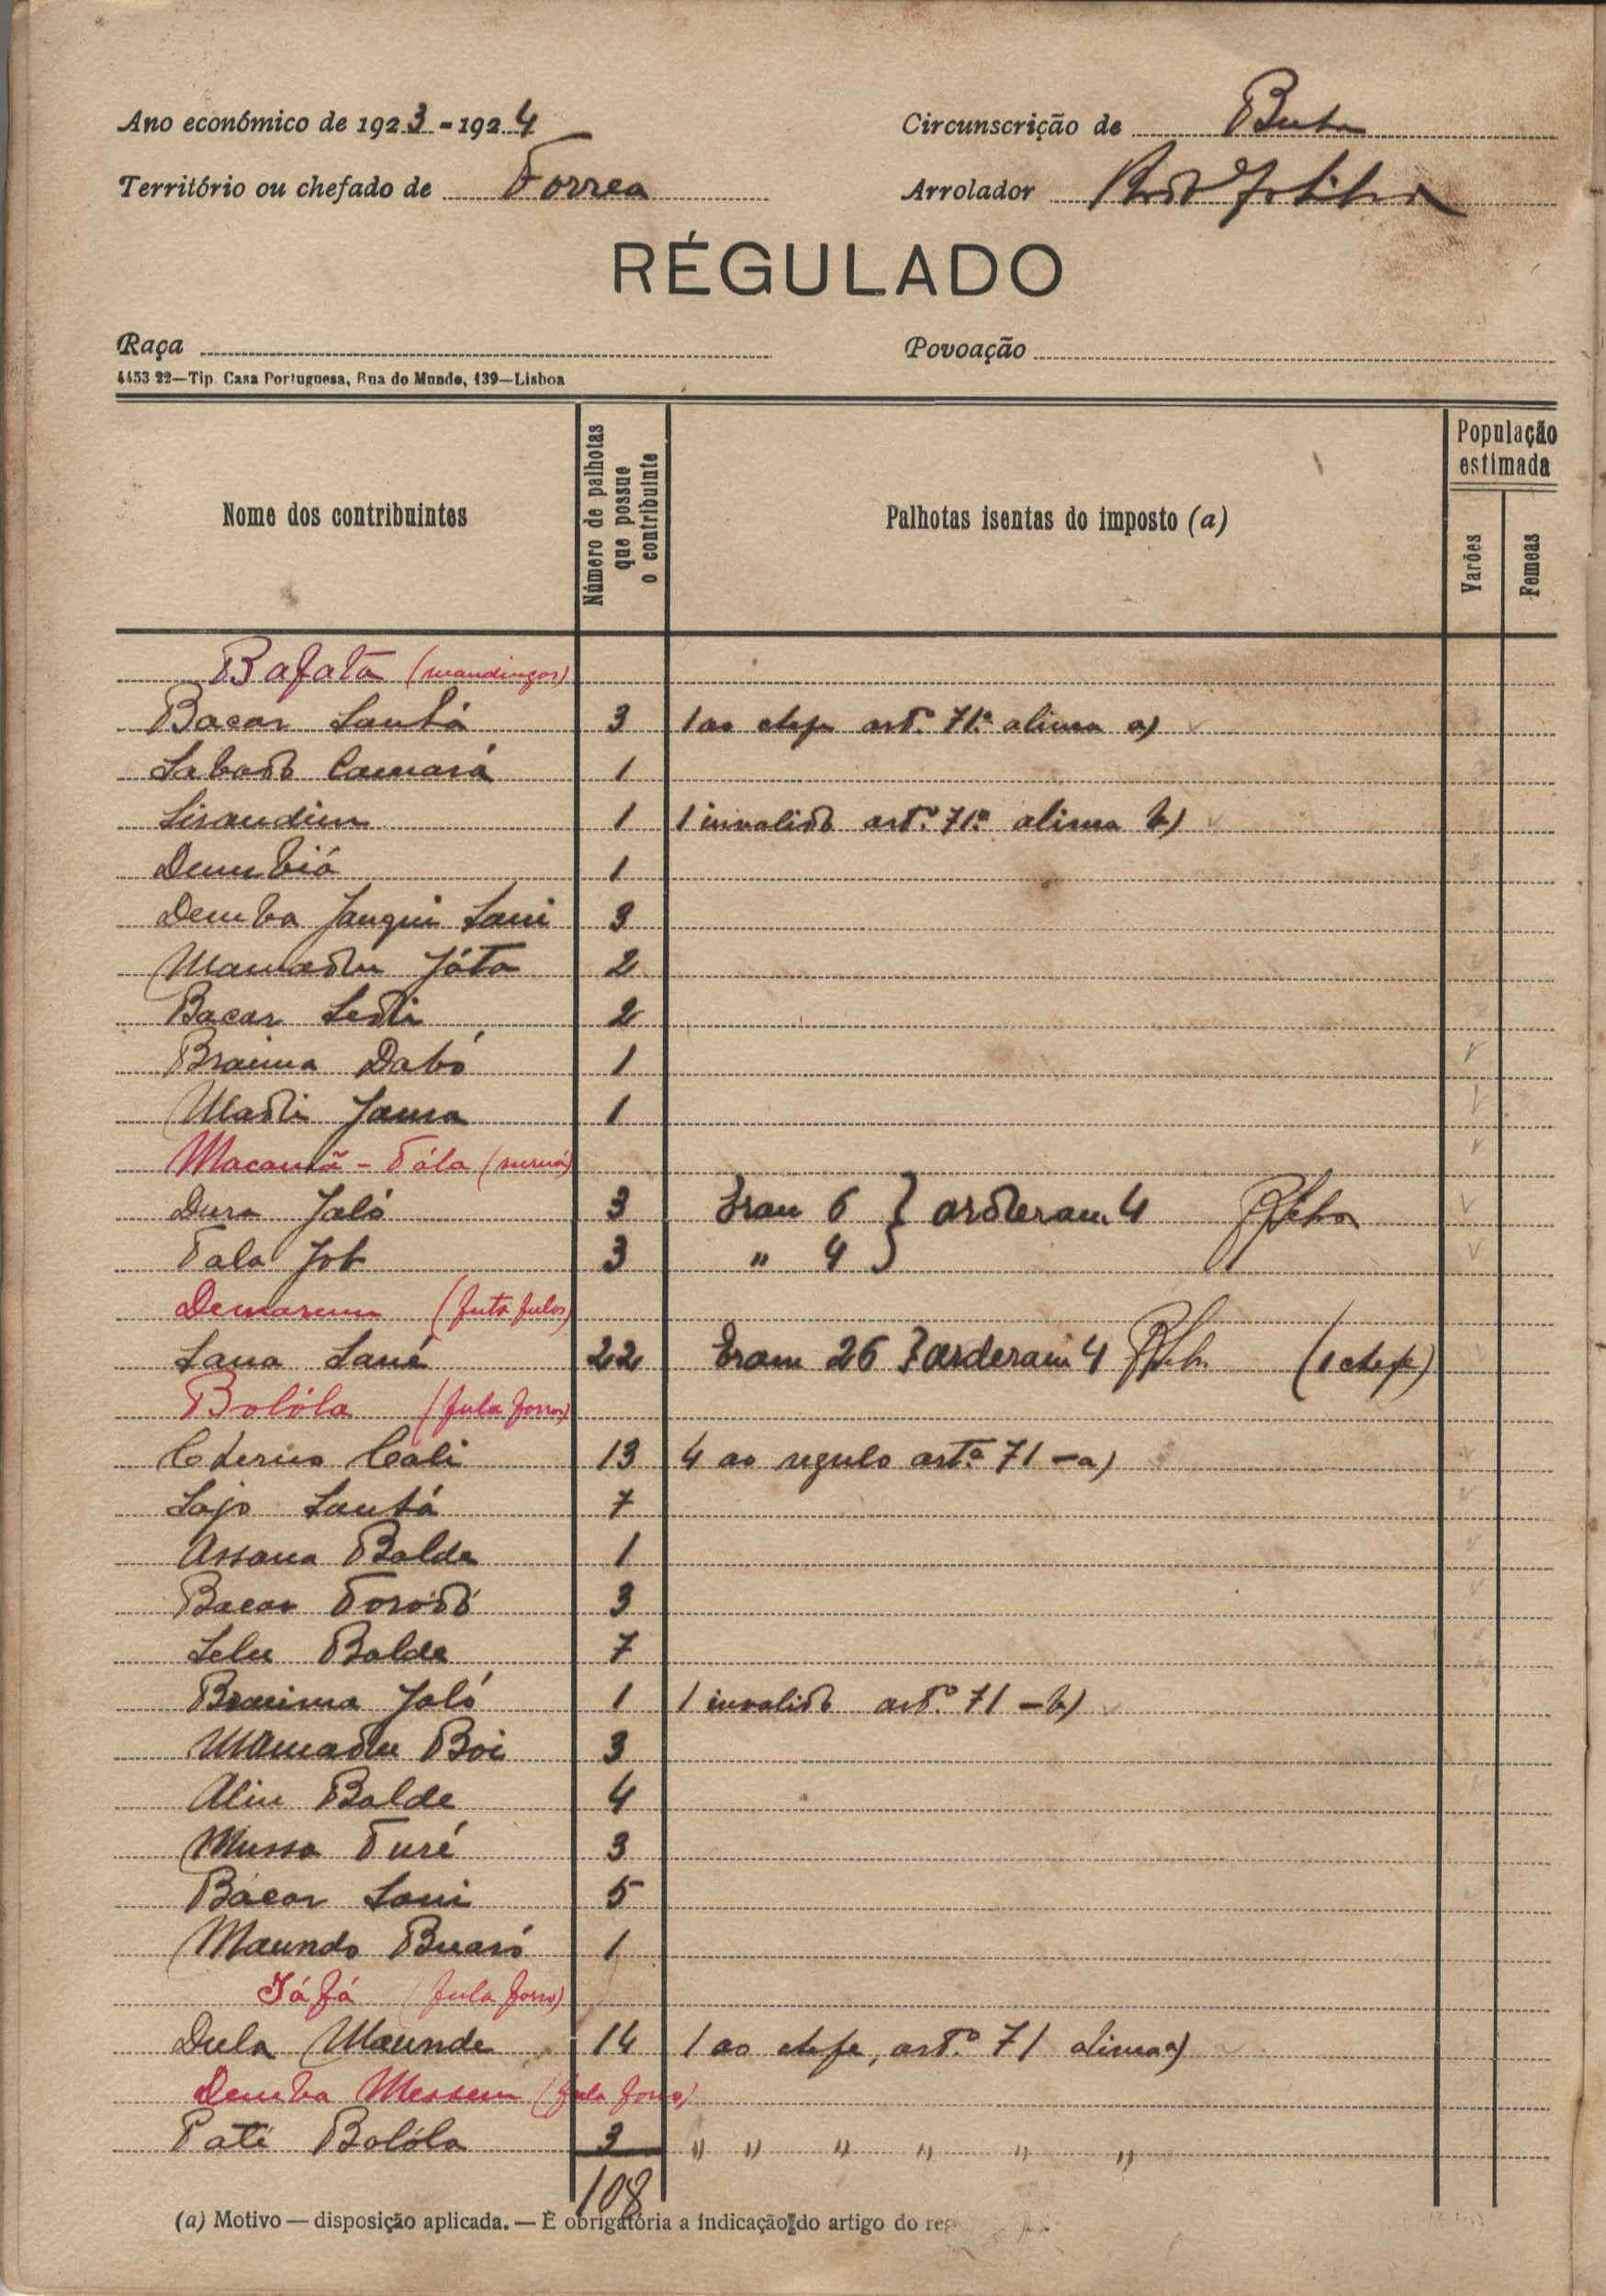 Ano económico de 1923-1924
Circunscrição de Buba
Território ou chefado de Forrea
Arrolador
RÉGULADO
Raça
Povoação
4453 22—Tip. Casa Portuguesa, Rua do Mundo, 139—Lisboa
Nome dos contribuintes
Número de palhotas que possue o contribuinte
Palhotas isentas do imposto (a)
População estimada
Varões
Femeas
Bafata (mandingos)
Bacar Santá 3 1 ao chefe artº. 71º alinea a)
Camará 1
1 1 invalido artº. 71º alinea b)
Dembiá 1
Demba Janqui Sani 3
Mamadu Játa 2
Bacar Sedi 2
Braima Dabó 1
Madi Jama 1
Tála
Dura Jaló 3 Eram 6 } arderam 4
Tala Job 3 " 4
(futa fulos)
Sana Sané 22 Eram 26 } arderam 4 (1 chefe)
Bolóla (fula forros)
Cali 13 4 ao regulo artº. 71 - a)
Sajo Santá 7
Assana Balde 1
Bacar Toródó 3
Selu Balde 7
Braima Jaló 1 1 invalido artº. 71 - b)
Mamadu Boi 3
Aliu Balde 4
Mussa Turé 3
Bácar Sani 5
Maundo Buaró 1
Jáfá (fula forro)
Dula Maunde 14 1 ao chefe, artº. 71 alinea a)
Demba (fula forro)
Paté Bolóla 3 " " " " " "
108
(a) Motivo — disposição aplicada. — É obrigatória a indicação do artigo do